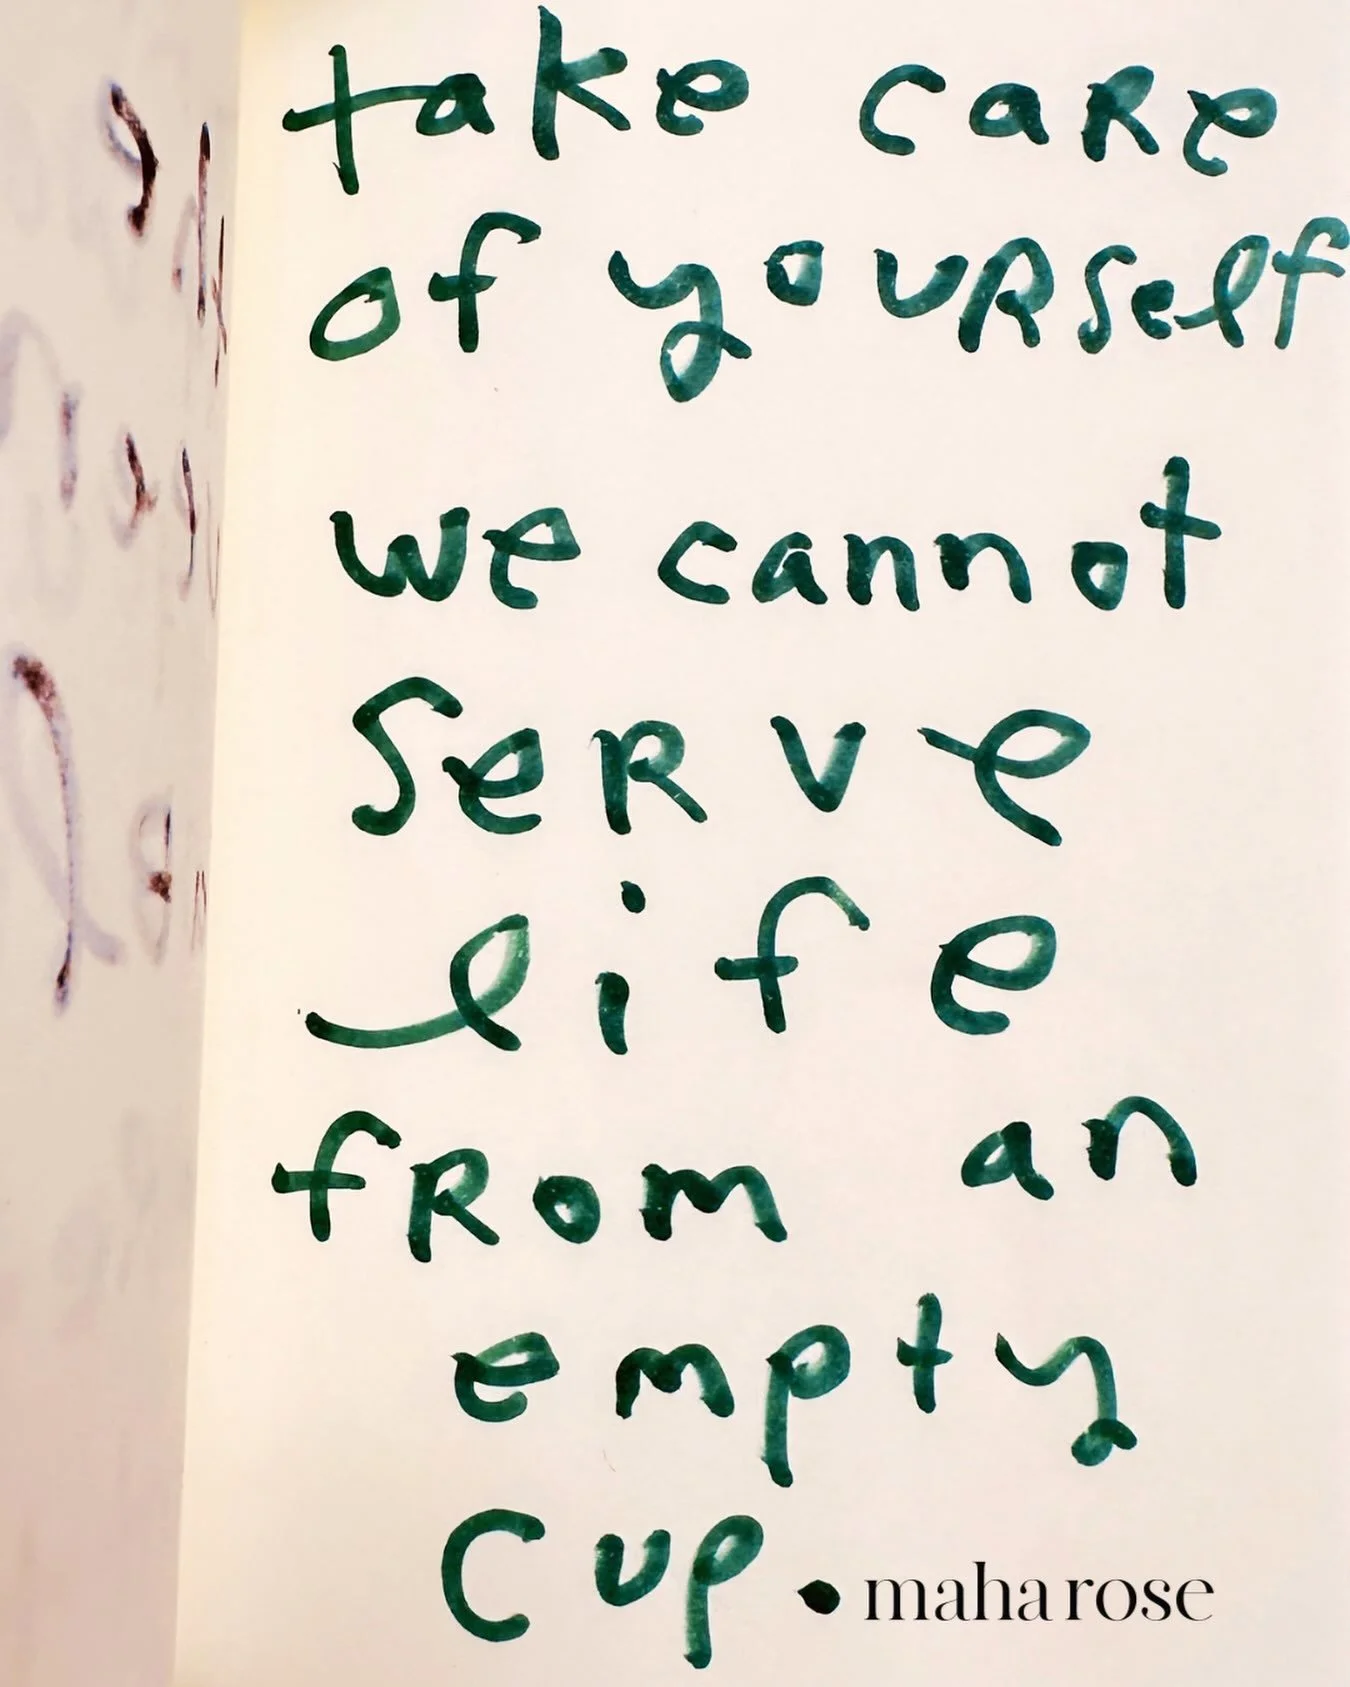 take care
of yourself
we cannot
serve
life
from an
empty
cup.
maha rose